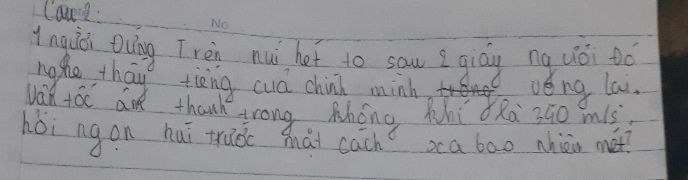 Câu 2:
No
1 người Đứng Trên núi hét to sau 2 giây người Đó
nghe thấy tiếng của chính mình trong vọng lại.
Vận tốc âm thanh trong không khí là 340 m/s.
hỏi ngọn núi trước mặt cách xa bao nhiêu mét?